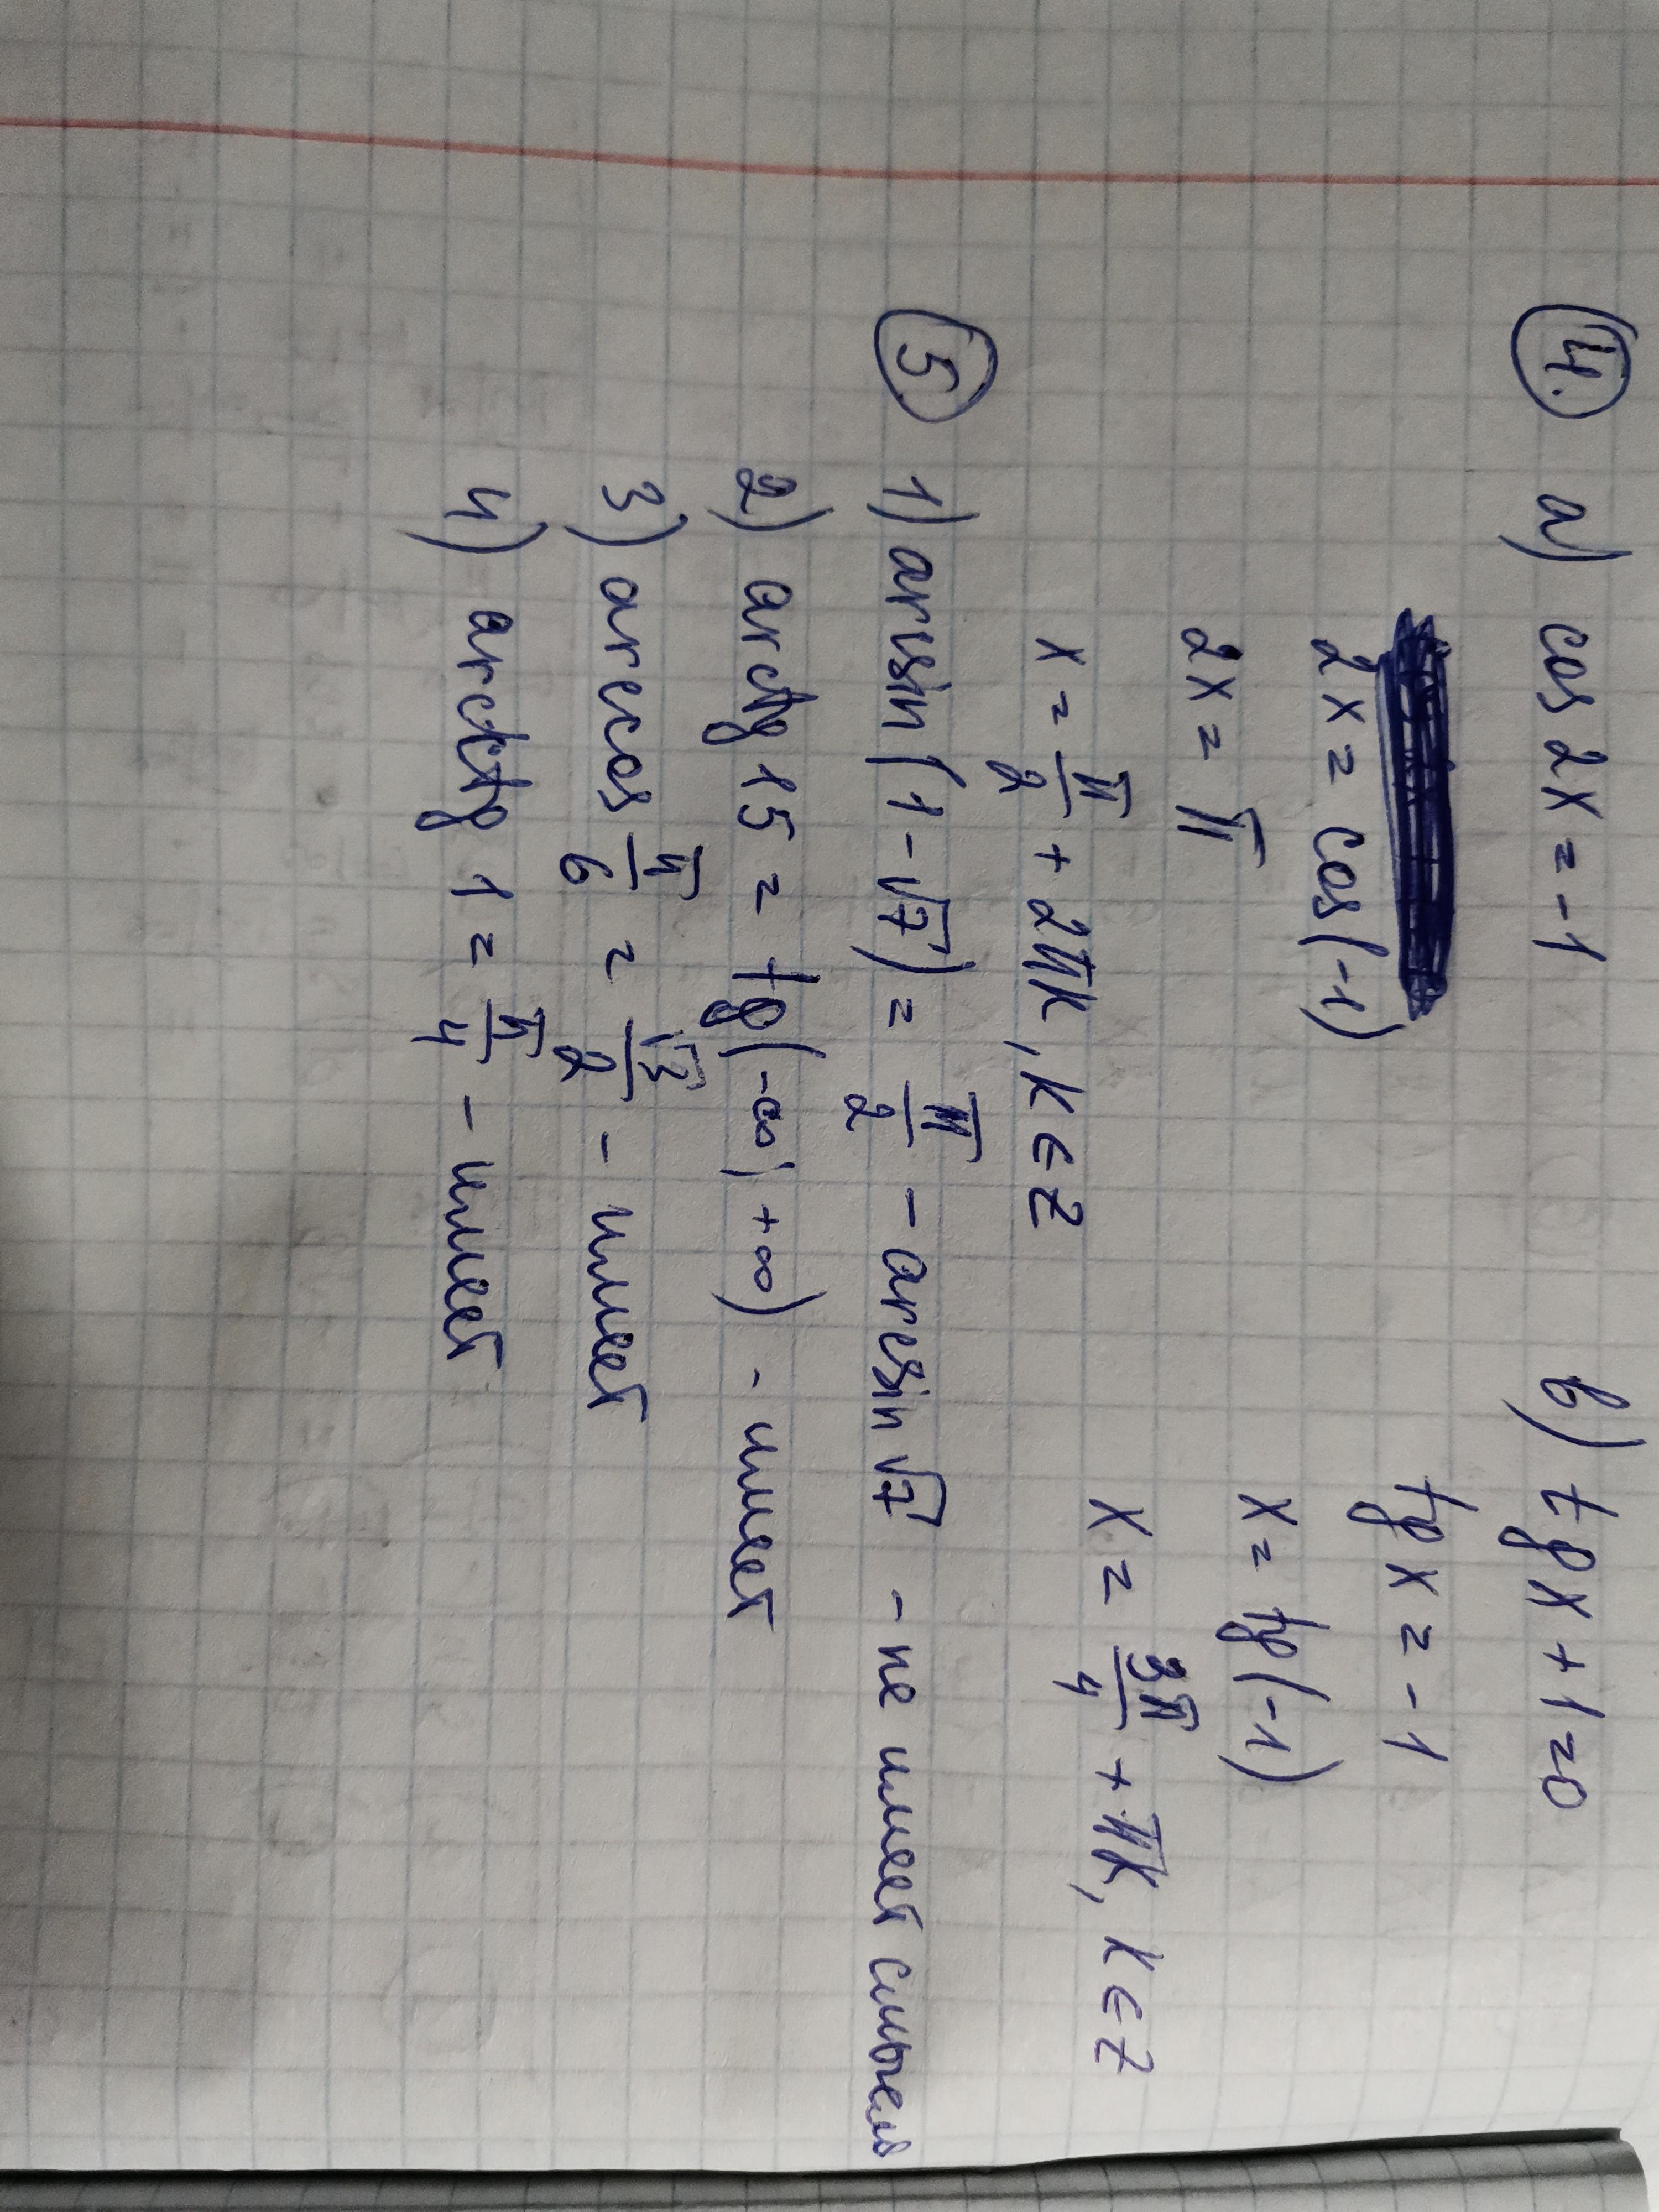 4. a) cos 2x = -1
2x = cos(-1)
2x = π
x = π/2 + 2πk, k ∈ Z
b) tg x + 1 = 0
tg x = -1
x = tg(-1)
x = 3π/4 + πk, k ∈ Z
5 1) arcsin(1-√7) = π/2 - arcsin √7 - не имеет смысла
2) arctg 15 = tg(-∞; +∞) - имеет
3) arccos π/6 = √3/2 - имеет
4) arcctg 1 = π/4 - имеет